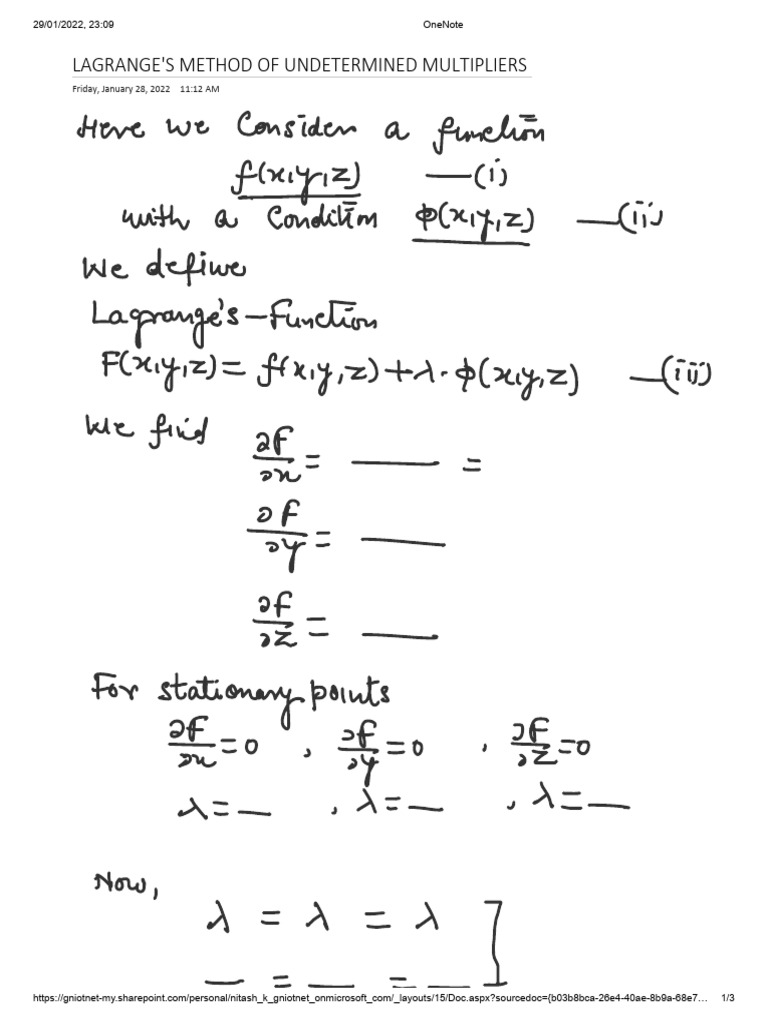 29/01/2022, 23:09 OneNote
LAGRANGE'S METHOD OF UNDETERMINED MULTIPLIERS
Friday, January 28, 2022 11:12 AM
Here we Consider a function
f(x,y,z) —(i)
with a Condition ϕ(x,y,z) —(ii)
We define
Lagrange's-Function
F(x,y,z) = f(x,y,z)+λ·ϕ(x,y,z) —(iii)
We find ∂F/∂x = ___ =
∂F/∂y = ___
∂F/∂z = ___
For stationary points
∂F/∂x = 0 , ∂F/∂y = 0 , ∂F/∂z = 0
λ = __ , λ = __ , λ = __
Now,
λ = λ = λ ]
__ = __ = __
https://gniotnet-my.sharepoint.com/personal/nitash_k_gniotnet_onmicrosoft_com/_layouts/15/Doc.aspx?sourcedoc={b03b8bca-26e4-40ae-8b9a-68e7… 1/3